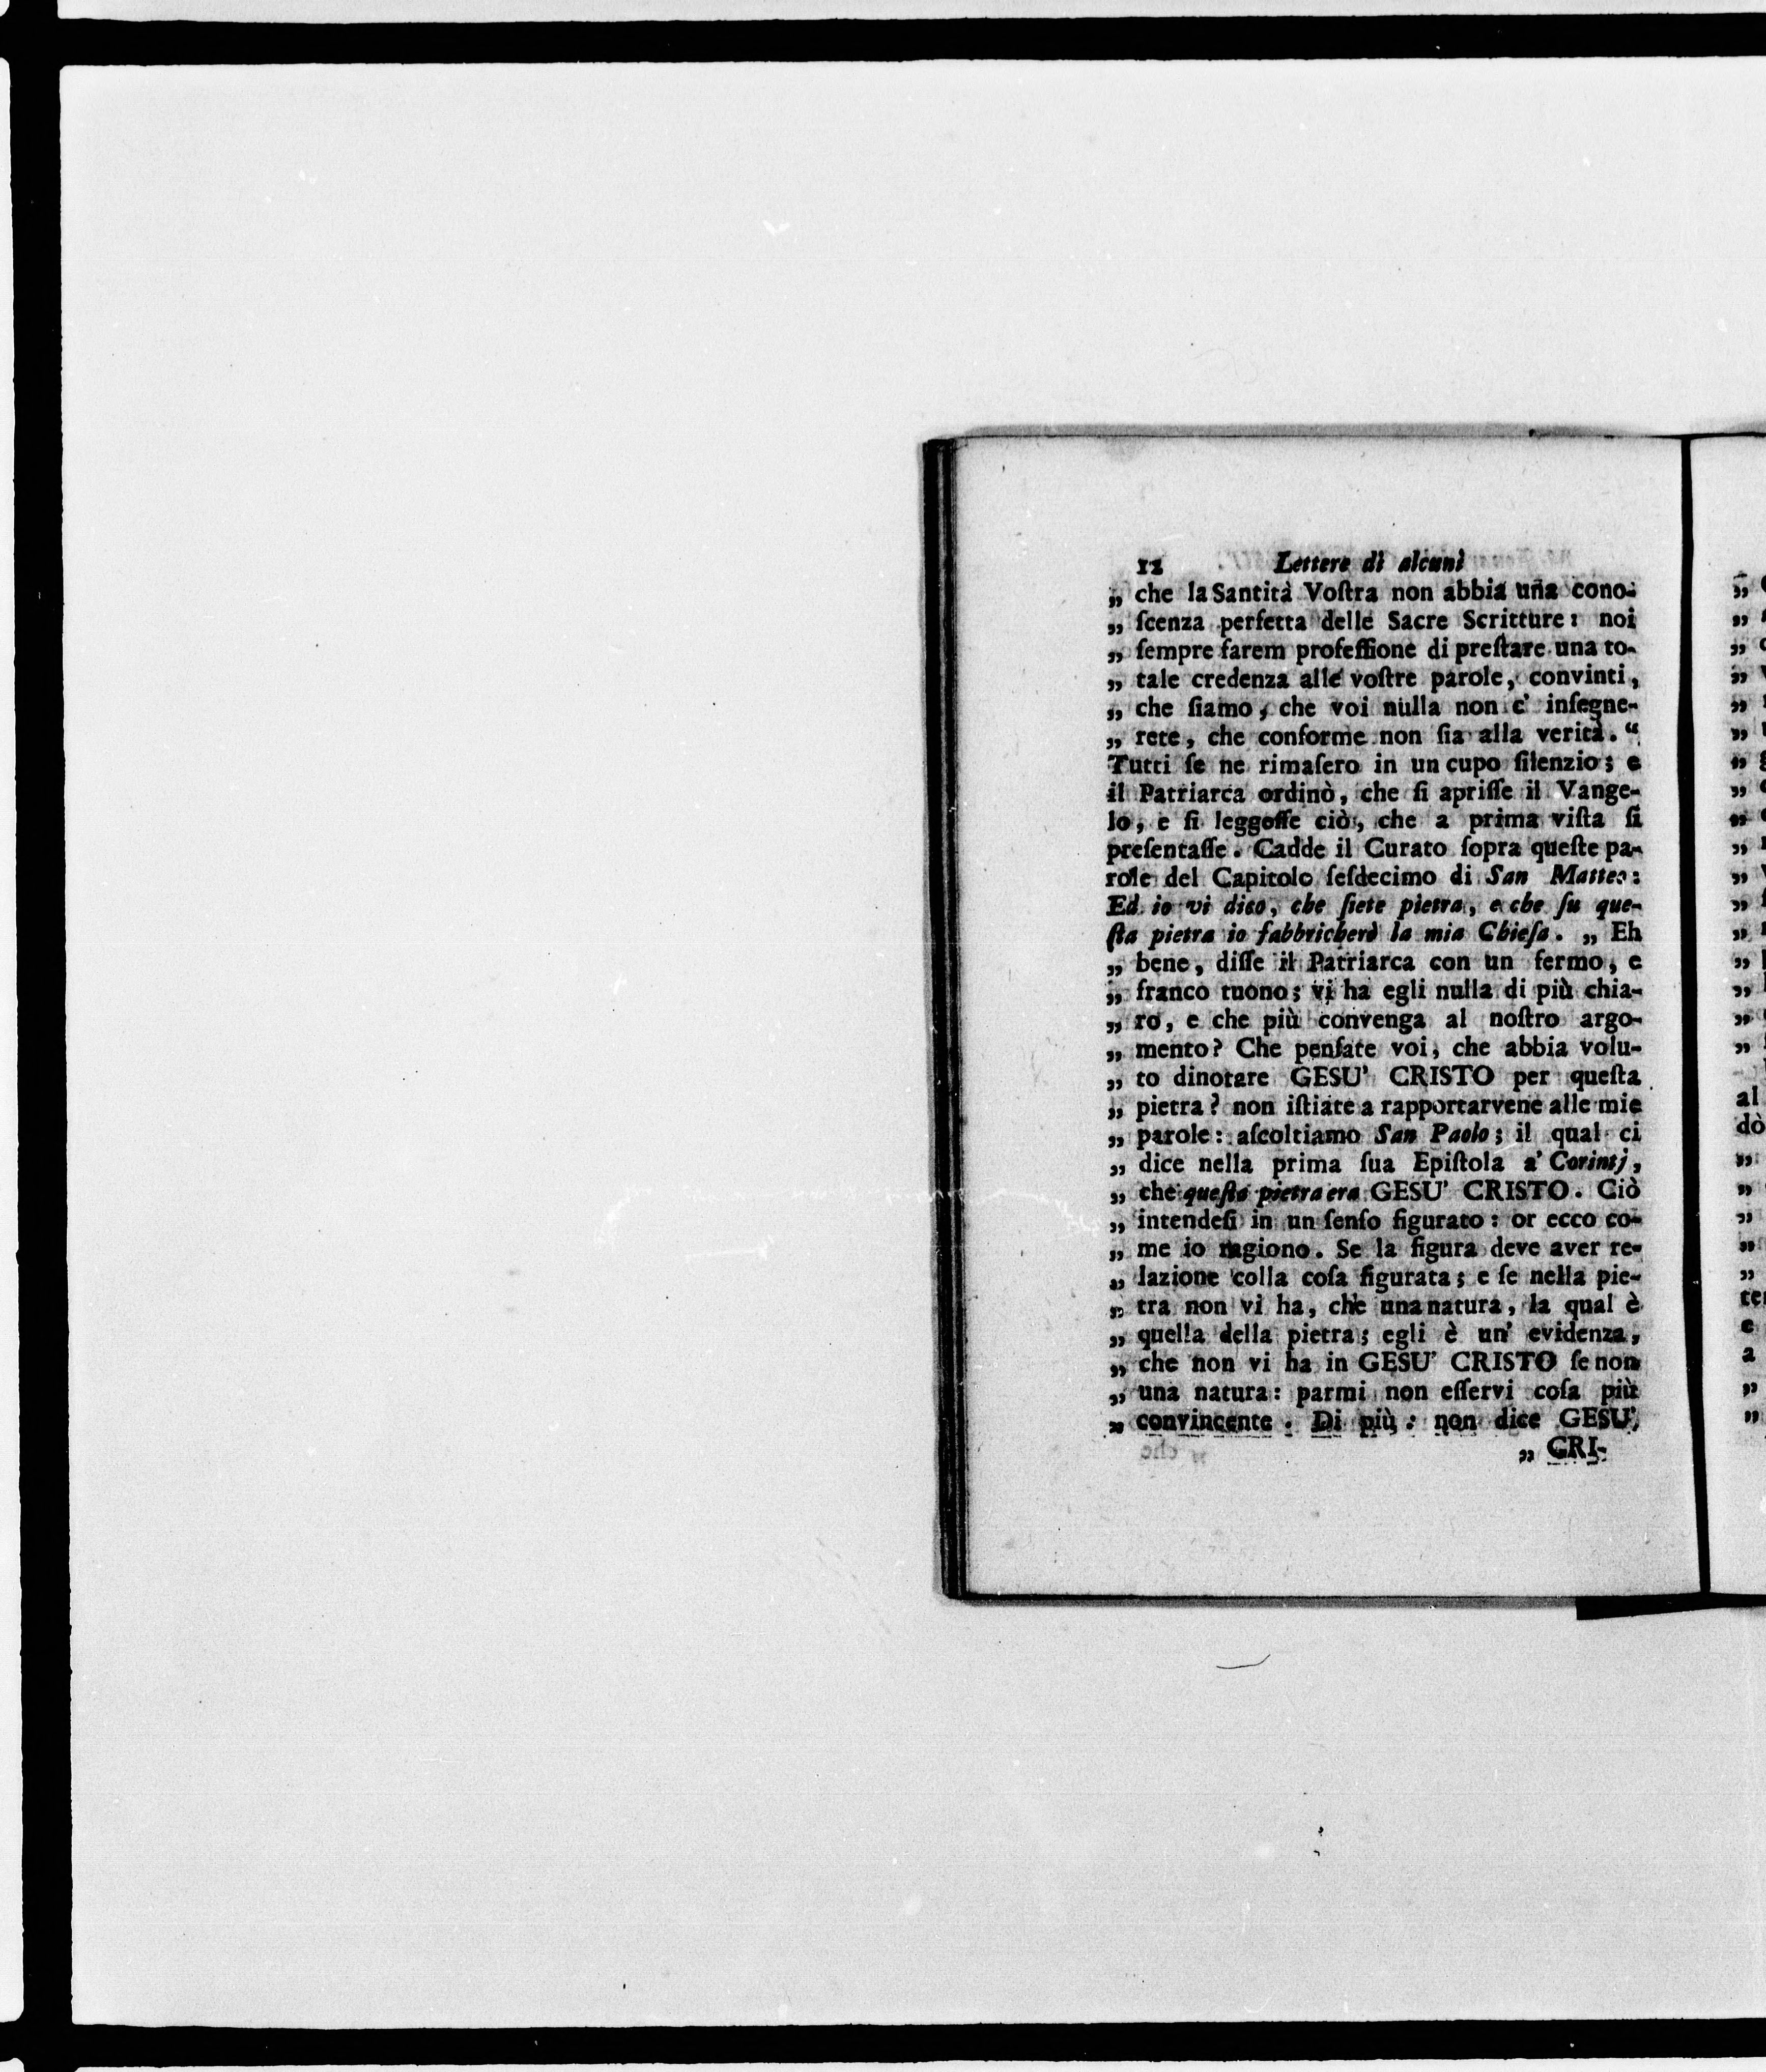 12 Lettere di alcuni
„ che la Santità Voſtra non abbia una cono-
„ ſcenza perfetta delle Sacre Scritture: noi
„ ſempre farem profeſſione di preſtare una to-
„ tale credenza alle voſtre parole, convinti,
„ che ſiamo, che voi nulla non c' inſegne-
„ rete, che conforme non ſia alla verità. “
Tutti ſe ne rimaſero in un cupo ſilenzio; e
il Patriarca ordinò, che ſi apriſſe il Vange-
lo, e ſi leggeſſe ciò, che a prima viſta ſi
preſentaſſe. Cadde il Curato ſopra queſte pa-
role del Capitolo ſeſdecimo di San Matteo:
Ed io vi dico, che ſiete pietra, e che ſu que-
ſta pietra io fabbricherò la mia Chieſa. „ Eh
„ bene, diſſe il Patriarca con un fermo, e
„ franco tuono; vi ha egli nulla di più chia-
„ ro, e che più convenga al noſtro argo-
„ mento? Che penſate voi, che abbia volu-
„ to dinotare GESU' CRISTO per queſta
„ pietra? non iſtiate a rapportarvene alle mie
„ parole: aſcoltiamo San Paolo; il qual ci
„ dice nella prima ſua Epiſtola a' Corintj,
„ che queſta pietra era GESU' CRISTO. Ciò
„ intendeſi in un ſenſo figurato: or ecco co-
„ me io ragiono. Se la figura deve aver re-
„ lazione colla coſa figurata; e ſe nella pie-
„ tra non vi ha, che una natura, la qual è
„ quella della pietra; egli è un' evidenza,
„ che non vi ha in GESU' CRISTO ſe non
„ una natura: parmi non eſſervi coſa più
„ convincente. Di più: non dice GESU'
„ CRI-
al
dò
e
a